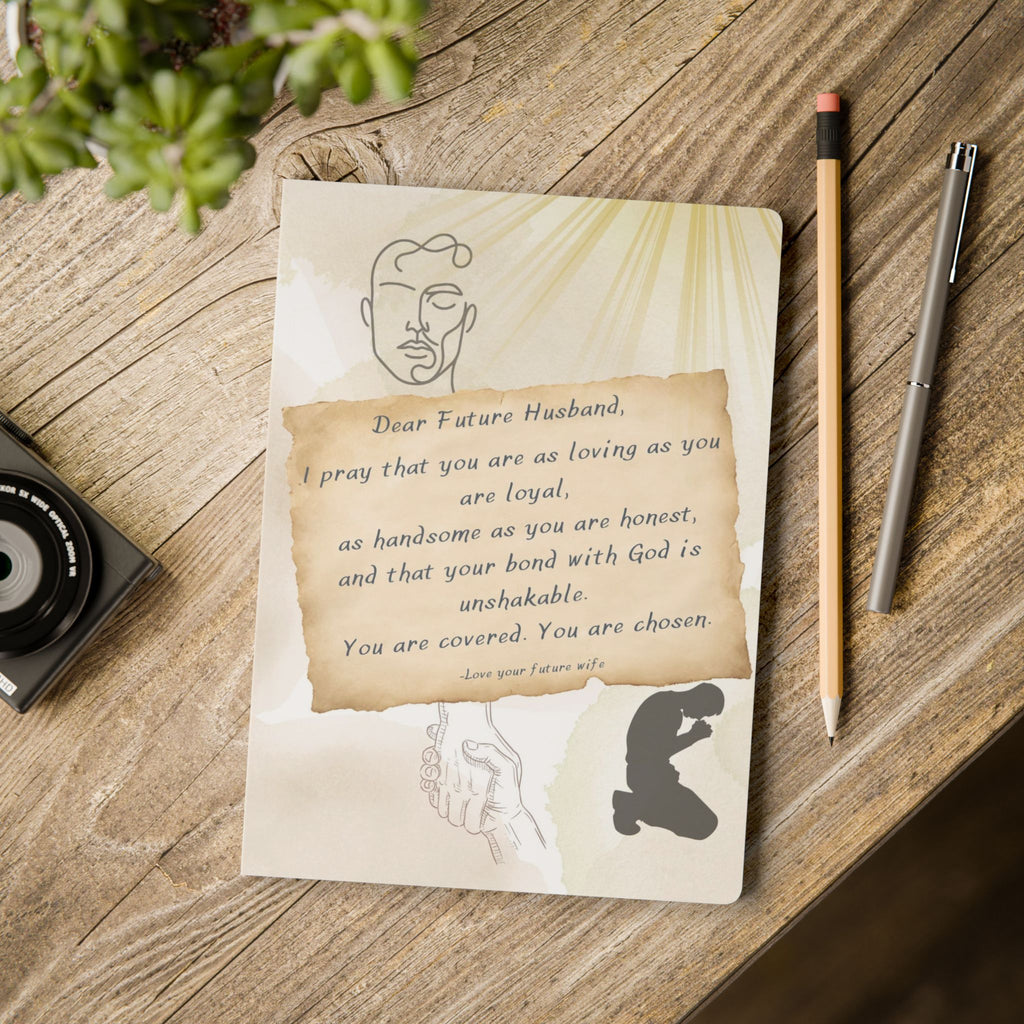 Dear Future Husband,
I pray that you are as loving as you
are loyal,
as handsome as you are honest,
and that your bond with God is
unshakable.
You are covered. You are chosen.
-Love your future wife
KOR 5X WIDE OPTICAL ZOOM VR